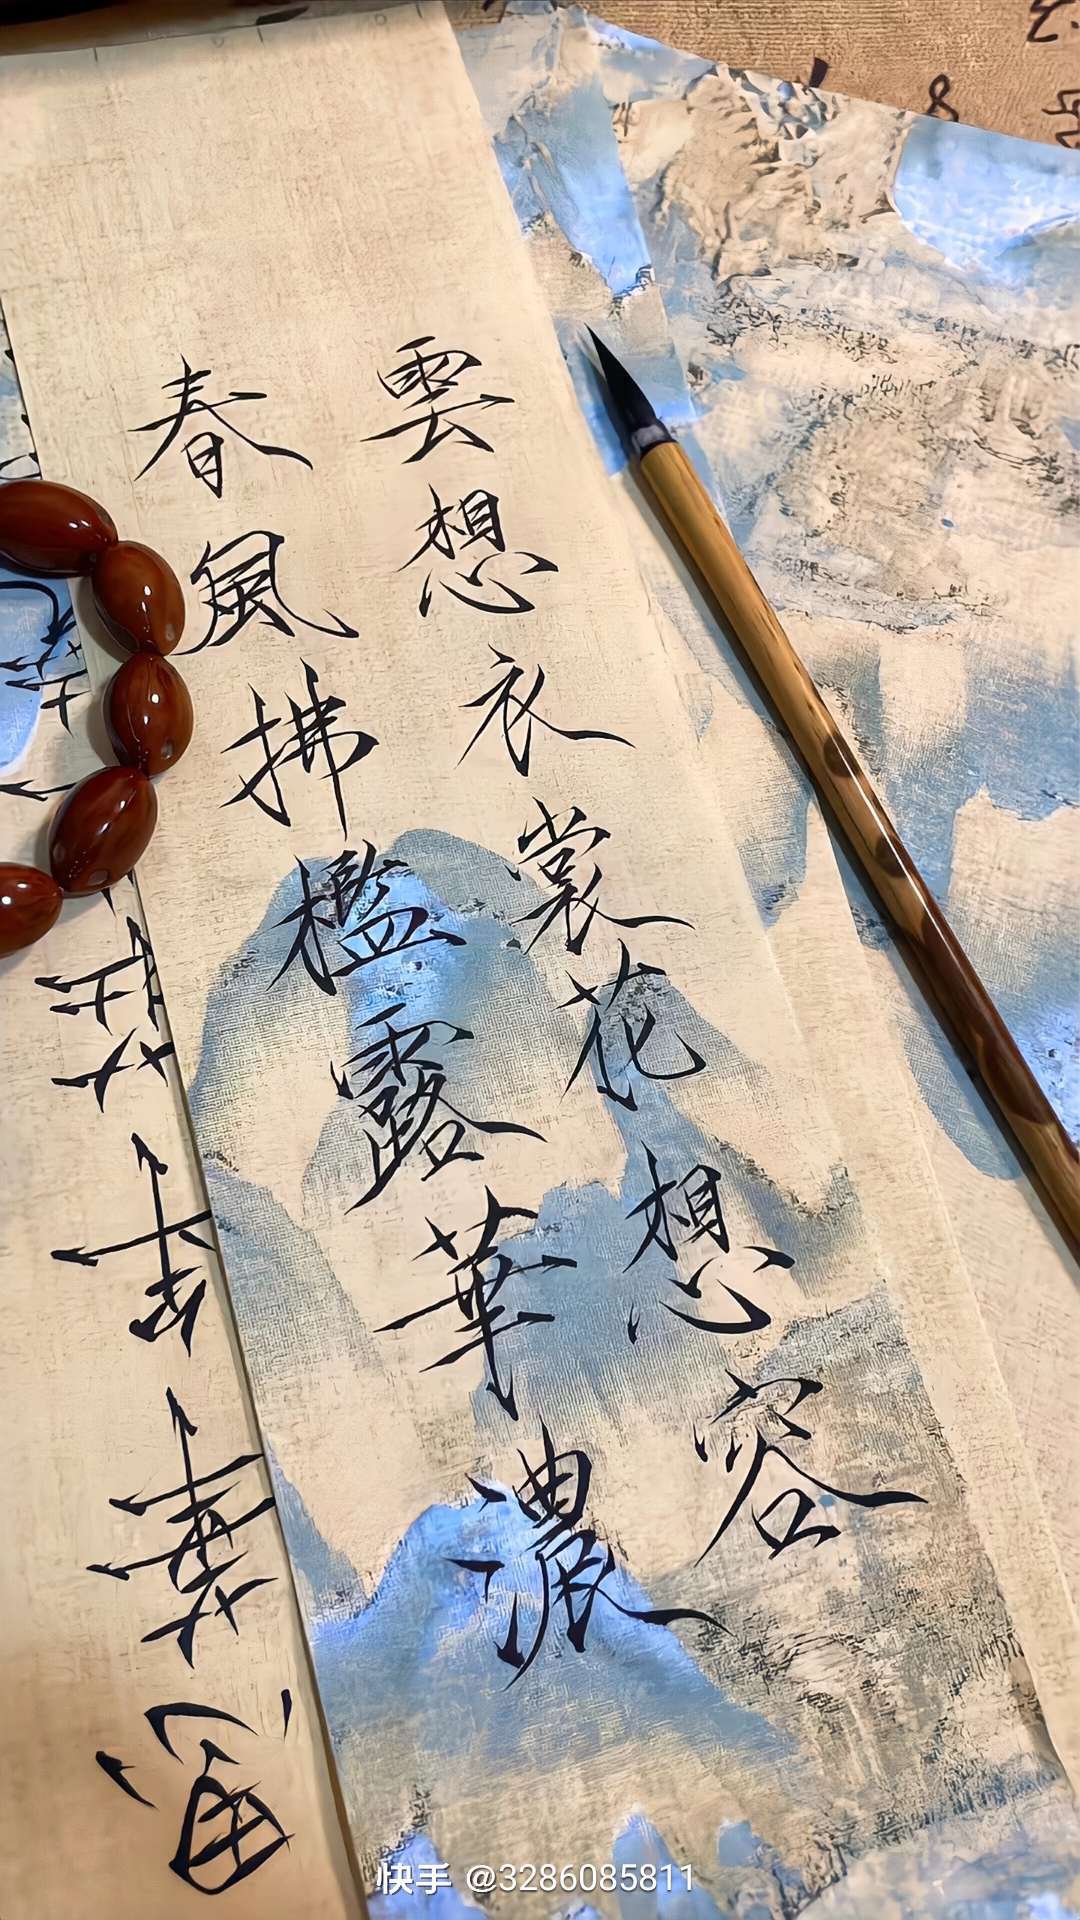 雲想衣裳花想容
春風拂檻露華濃
快手 @3286085811